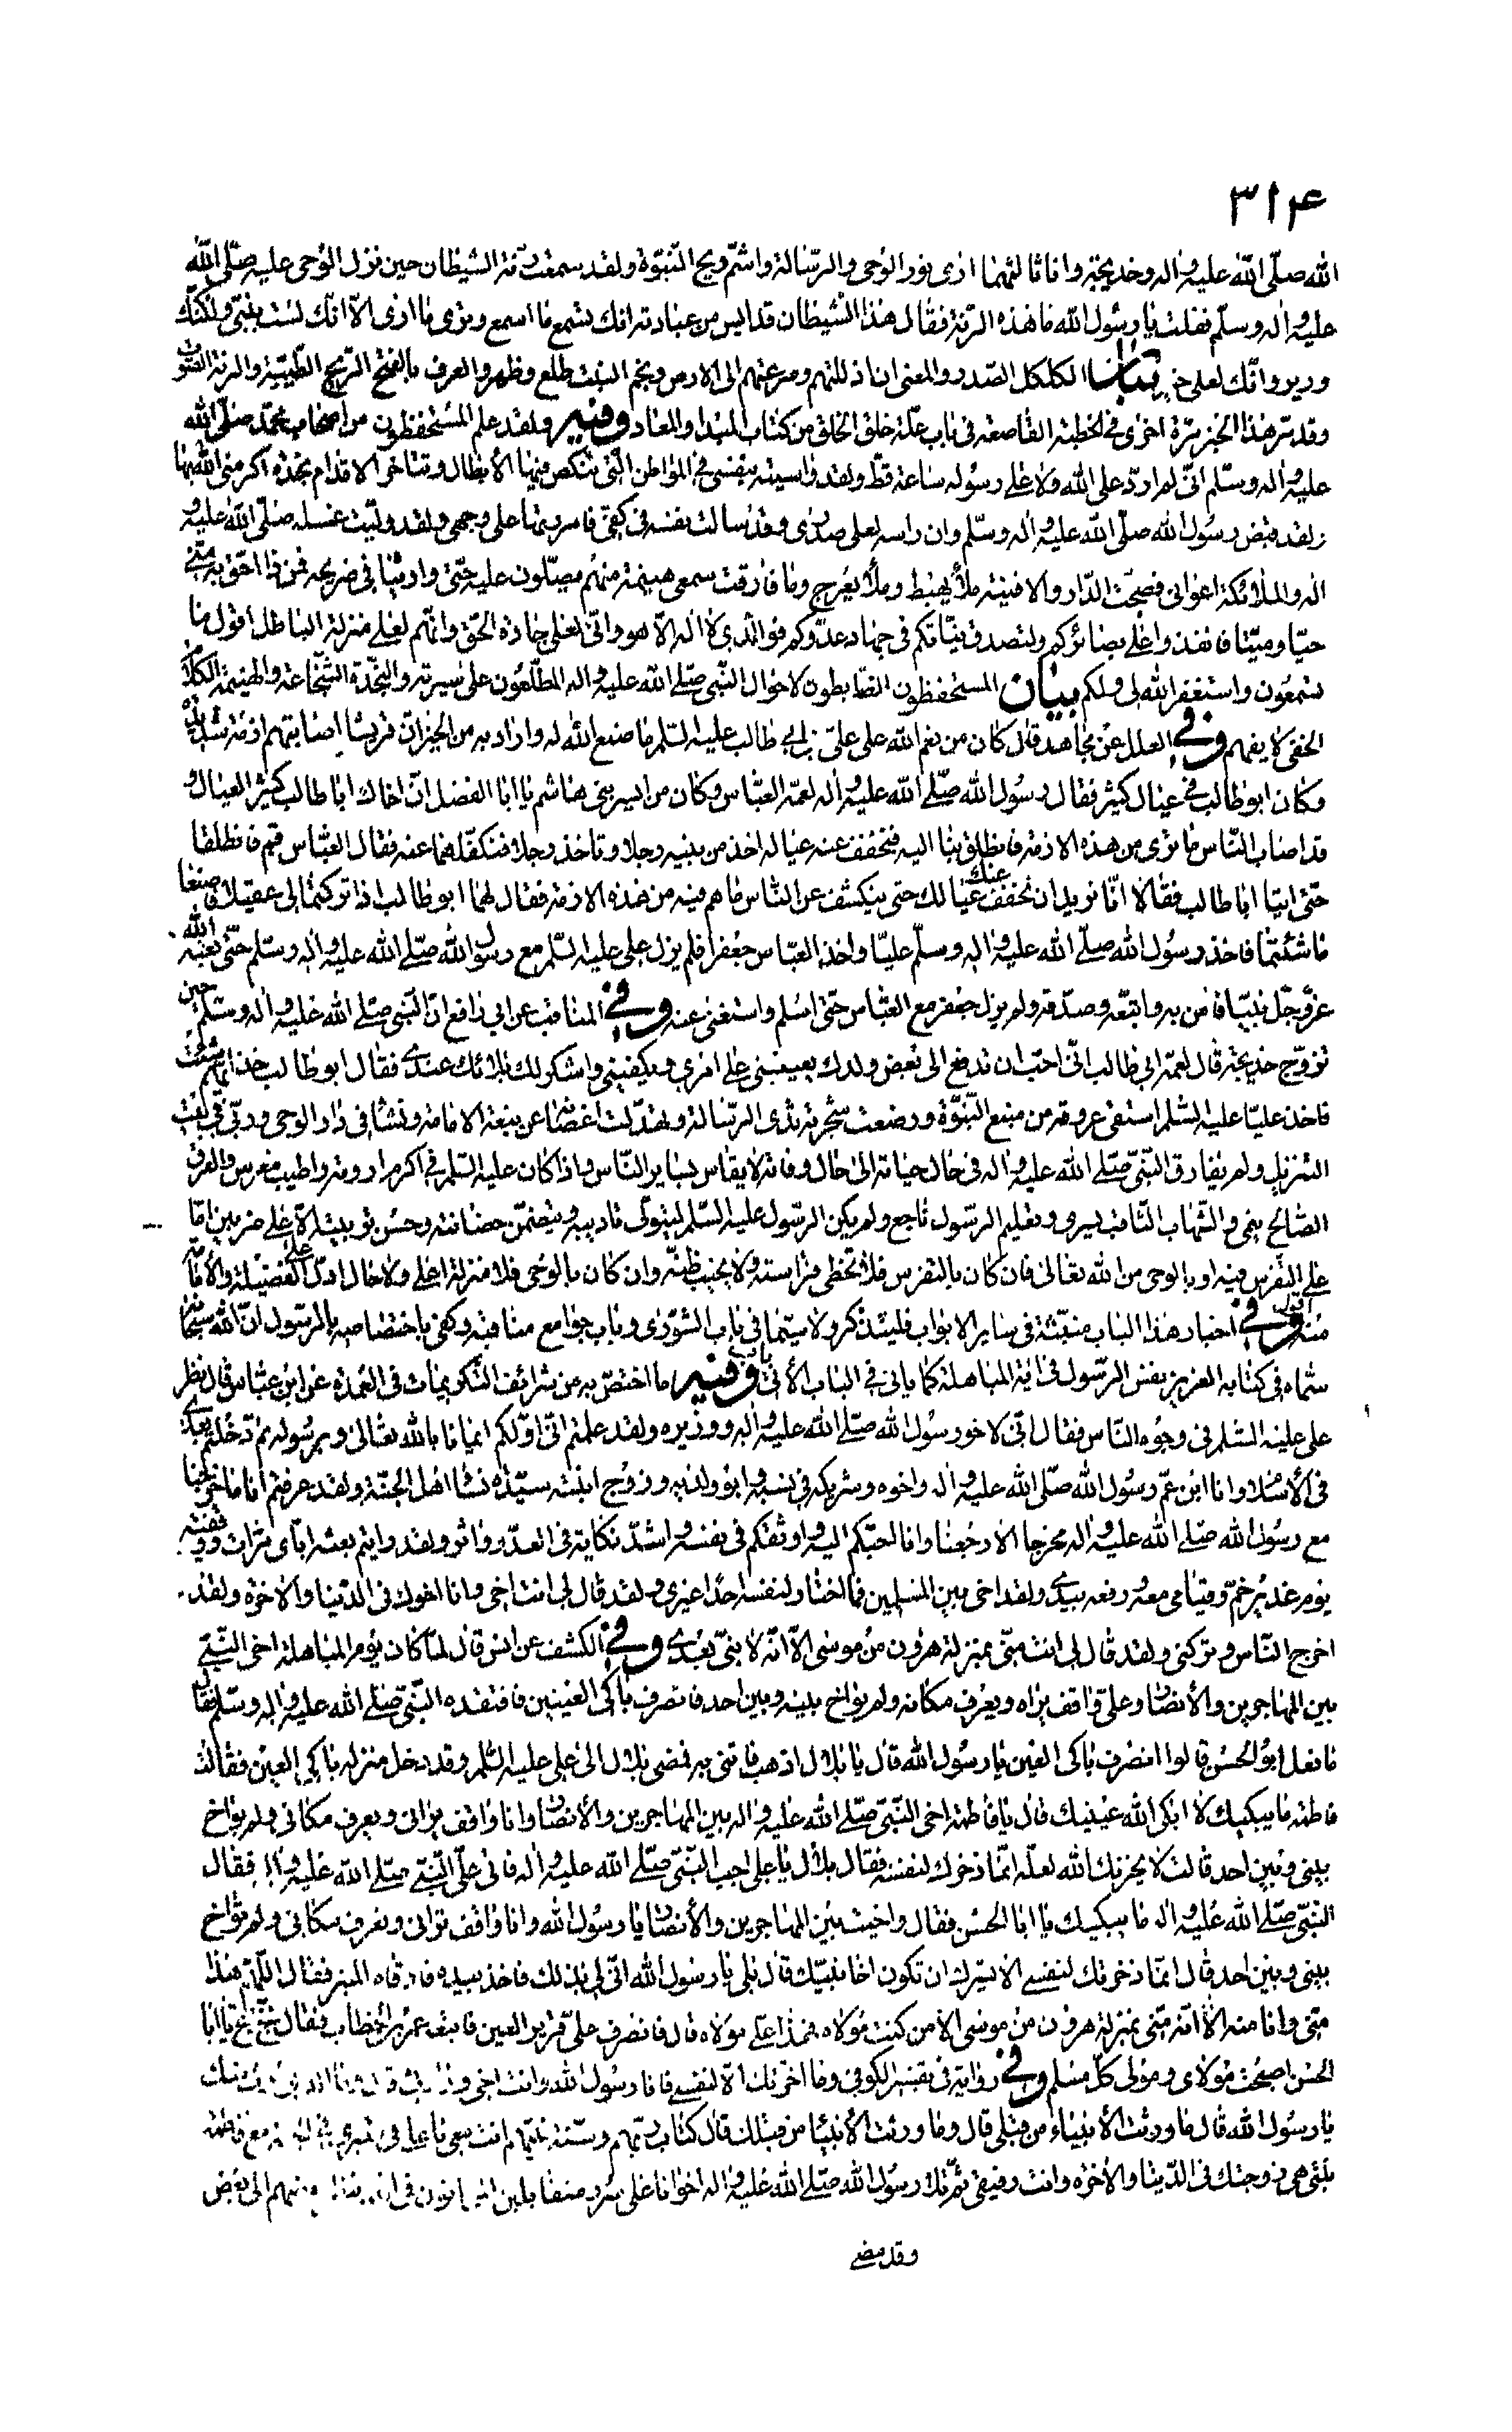 ۳۱۴
الله صلّى الله عليه واله وخديجة وانا ثالثهما ارى نور الوحى والرّسالة واشمّ ريح النّبوّة ولقد سمعت رنّة الشيطان حين نزل الوحى عليه صلّى الله
عليه واله وسلّم فقلت يا رسول الله ما هذه الرّنة فقال هذا الشيطان قد ايس من عبادته انك تسمع ما اسمع وترى ما ارى الّا انّك لست بنبىّ ولكنّك
وزير وانّك لعلى خير بيان الكلكل الصّدر والمعنى ان اذللتهم وصرعتهم الى الارض ونجم النبت طلع وظهر والعرف بالفتح الرّيح الطّيبة والرنة الصّوت
وقد مرّ هذا الخبر مرّة اخرى فى الخطبة القاصعة فى باب علّة خلق الخلق من كتاب المبدا والمعاد وفيه ولقد علم المستحفظون من اصحاب محمّد صلّى الله
عليه واله وسلّم انّى لم اردّ على الله ولا على رسوله ساعة قطّ ولقد واسيته بنفسى فى المواطن الّتى تنكص فيها الابطال وتتاخر الاقدام نجدة اكرمنى الله بها
ولقد قبض رسول الله صلّى الله عليه واله وسلّم وان راسه لعلى صدرى وقد سالت نفسه فى كفّى فامررتها على وجهى ولقد ولّيت غسله صلّى الله عليه و
اله والملائكة اعوانى فضجّت الدّار والافنية ملأ يهبط وملأ يعرج وما فارقت سمعى هينمة منهم يصلّون عليه حتّى واريناه فى ضريحه فمن ذا احقّ به منّى
حيّا وميّتا فانفذوا على بصائركم ولتصدق نيّاتكم فى جهاد عدوّكم فوالّذى لا اله الّا هو وانّى لعلى جادّة الحقّ وانّهم لعلى منزلة الباطل اقول ما
تسمعون واستغفر الله لى ولكم بيان المستحفظون الضابطون لاحوال النّبى صلّى الله عليه واله المطّلعون على سيرته والنّجدة الشّجاعة والهينمة الكلام
الخفى لا يفهم وفى العلل عن مجاهد قال كان من نعم الله على علىّ بن ابى طالب عليه السّلم ما صنع الله له واراد به من الخير انّ قريشا اصابتهم ازمة شديدة
وكان ابو طالب فى عيال كثير فقال رسول الله صلّى الله عليه واله لعمّه العبّاس وكان من ايسر بنى هاشم يا ابا الفضل انّ اخاك ابا طالب كثير العيال و
قد اصاب النّاس ما ترى من هذه الازمة فانطلق بنا اليه فنخفف عنه عياله اخذ من بنيه رجلا وتاخذ رجلا فنكفّلهما عنه فقال العبّاس قم فانطلقا
حتّى اتيا ابا طالب فقالا انّا نريد ان نخفف عنك عيالك حتى ينكشف عن النّاس ما هم فيه من هذه الازمة فقال لهما ابو طالب اذا تركتما لى عقيلا فاصنعا
ما شئتما فاخذ رسول الله صلّى الله عليه واله وسلّم عليّا واخذ العبّاس جعفرا فلم يزل على عليه السّلم مع رسول الله صلّى الله عليه واله وسلّم حتّى بعثه الله
عزّ وجلّ نبيّا فامن به واتبعه وصدّقه ولم يزل جعفر مع العبّاس حتّى اسلم واستغنى عنه وفى المناقب عن ابى رافع انّ النبى صلّى الله عليه واله وسلّم حين
تزوّج خديجة قال لعمّه ابى طالب انّى احبّ ان تدفع الى بعض ولدك يعيننى على امرى ويكفينى واشكر لك بلائك عندى فقال ابو طالب خذ ايّهم شئت
فاخذ عليّا عليه السّلم استقى عروقه من منبع النّبوّة ورضعت شجرته ثدى الرّسالة وتهدّلت اغصانه عن نبعة الامامة ونشأ فى دار الوحى وربّى فى بيت
التنزيل ولم يفارق النّبىّ صلّى الله عليه واله فى حال حياته الى حال وفاته لا يقاس بساير النّاس واذا كان عليه السّلم فى اكرم ارومة واطيب مغرس والعرق
الصّالح ينمى والشّهاب الثّاقب يسرى وتعليم الرّسول ناجع ولم يكن الرّسول عليه السّلم ليتولّى تاديبه ويتضمّن حضانته وحسن تربيته الّا على ضربين امّا
على التفرّس فيه او بالوحى من الله تعالى فان كان بالتفرّس فلا تخطى فراسته ولا يخيب ظنّه وان كان بالوحى فلا منزلة اعلى ولا حال ادلّ على الفضيلة والامامة
منه اقول وفى اخبار هذا الباب منبثّة فى ساير الابواب فليتذكر ولا سيّما فى باب الشورى وباب جوامع مناقبه وكفى باختصاصه بالرّسول انّ الله سبحانه
سمّاه فى كتابه العزيز بنفس الرّسول فى اية المباهلة كما ياتى فى الباب الاتى باب وفيه ما اختصّ به من شرائف التّكريمات فى العمدة عن ابن عبّاس قال نظر
على عليه السّلم فى وجوه النّاس فقال انّى لاخو رسول الله صلّى الله عليه واله ووزيره ولقد علمتم انّى اوّلكم ايمانا بالله تعالى وبرسوله ثمّ دخلتم بعدى
فى الاسلام وانا ابن عمّ رسول الله صلّى الله عليه واله واخوه وشريكه فى نسبه وابو ولديه وزوج ابنته سيّدة نساء اهل الجنّة ولقد عرفتم انّا ما خرجنا
مع رسول الله صلّى الله عليه واله مخرجا الّا رجعنا وانا احبّكم اليه واوثقكم فى نفسه واشدّ نكاية فى العدوّ واثر ولقد رايتم بعثه ايّاى ببراءة ووقفته
يوم غدير خمّ وقيامى معه ورفعه بيدى ولقد اخى بين المسلمين فما اختار لنفسه احدا غيرى ولقد قال لى انت اخى وانا اخوك فى الدّنيا والاخرة ولقد
اخرج النّاس وتركنى ولقد قال لى انت منّى بمنزلة هرون من موسى الّا انّه لا نبىّ بعدى وفى الكشف عن انس قال لمّا كان يوم المباهلة اخى النّبى
بين المهاجرين والانصار وعلىّ واقف يراه ويعرف مكانه ولم يواخ بينه وبين احد فانصرف باكى العينين فافتقده النّبى صلّى الله عليه واله وسلّم فقال
ما فعل ابو الحسن قالوا انصرف باكى العين يا رسول الله قال يا بلال اذهب فاتنى به فمضى بلال الى على عليه السّلم وقد دخل منزله باكى العين فقالت
فاطمة ما يبكيك لا ابكى الله عينيك قال يا فاطمة اخى النّبىّ صلّى الله عليه واله بين المهاجرين والانصار وانا واقف يرانى ويعرف مكانى ولم يواخ
بينى وبين احد قالت لا يحزنك الله لعلّه انّما ذخرك لنفسه فقال بلال يا على اجب النّبىّ صلّى الله عليه واله فاتى علىّ النّبى صلّى الله عليه واله فقال
النّبى صلّى الله عليه واله ما يبكيك يا ابا الحسن فقال واخيت بين المهاجرين والانصار يا رسول الله وانا واقف ترانى وتعرف مكانى ولم تواخ
بينى وبين احد قال انّما ذخرتك لنفسى الا يسرك ان تكون اخا نبيّك قال بلى يا رسول الله انّى لى بذلك فاخذ بيده فارقاه المنبر فقال اللّهمّ هذا
منّى وانا منه الا انّه منّى بمنزلة هرون من موسى الا من كنت مولاه فهذا على مولاه قال فانصرف علىّ قرير العين فاتبعه عمر بن الخطاب فقال بخّ بخّ يا ابا
الحسن اصبحت مولاى ومولى كلّ مسلم وفى رواية فى تفسير الكوفى وما اخرتك الّا لنفسى فانا رسول الله وانت اخى ووارثى قال وما ارث منك
يا رسول الله قال ما ورثت الانبياء من قبلى قال وما ورثت الانبياء من قبلك قال كتاب ربّهم وسنّة نبيّهم انت معى يا على فى قصرى فى الجنة مع فاطمة
بنتى هى زوجتك فى الدّنيا والاخرة وانت رفيقى ثمّ تلا رسول الله صلّى الله عليه واله اخوانا على سرر متقابلين المتحابون فى الله ينظر بعضهم الى بعض
وقد مضى